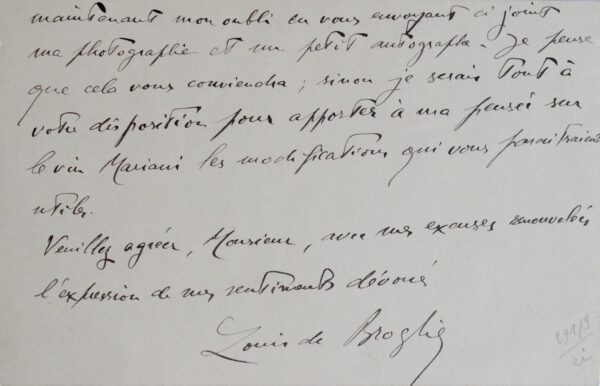 maintenant mon oubli en vous envoyant ci joint
ma photographie et un petit autographe. Je pense
que cela vous conviendra ; sinon je serais tout à
votre disposition pour apporter à ma pensée sur
le vin Mariani les modifications qui vous paraitraient
utiles.
Veuillez agréer, Monsieur, avec mes excuses renouvelées
l'expression de mes sentiments dévoués
Louis de Broglie